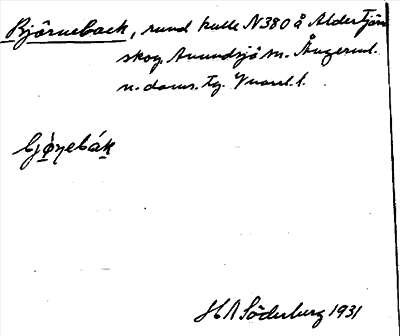 Björneback, rund kulle N380 å Aldertjän
skog. Anundsjö sn. Ångerml.
n. doms. tg.
bjø̀ŋebák
H A Söderberg 1931